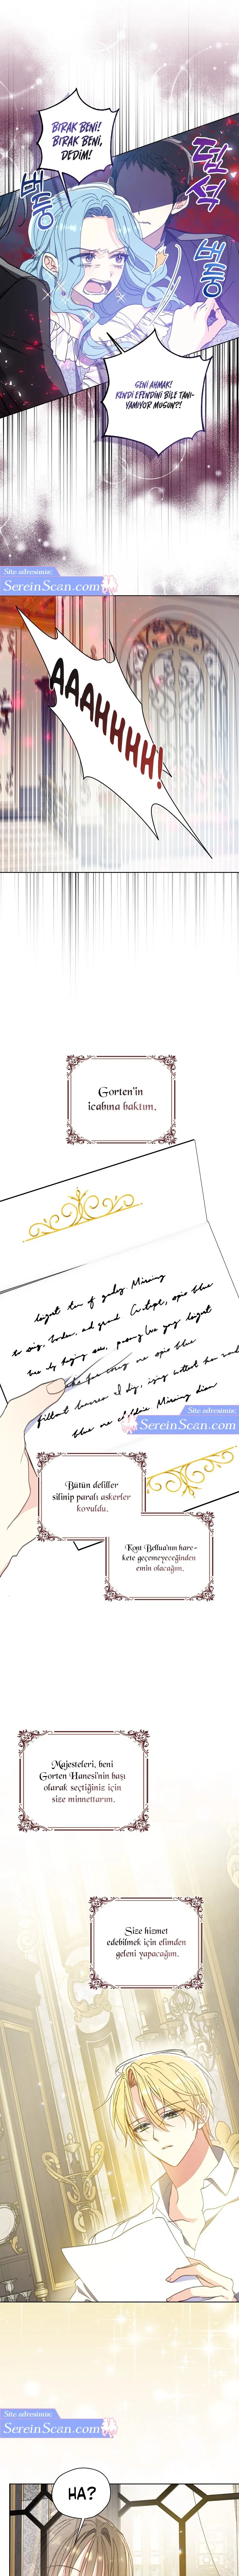 BIRAK BENİ!
BIRAK BENİ,
DEDİM!
덥
석
버
둥
버
둥
SENİ AHMAK!
KENDİ EFENDİNİ BİLE TANI-
YAMIYOR MUSUN?!
Site adresimiz:
SereinScan.com
AAAHHHH!
Gorten'in
icabına baktım.
Site adresimiz:
SereinScan.com
Bütün deliller
silinip paralı askerler
kovuldu.
Kont Bellua'nın hare-
kete geçemeyeceğinden
emin olacağım.
Majesteleri, beni
Gorten Hanesi'nin başı
olarak seçtiğiniz için
size minnettarım.
Size hizmet
edebilmek için elimden
geleni yapacağım.
Site adresimiz:
SereinScan.com
HA?